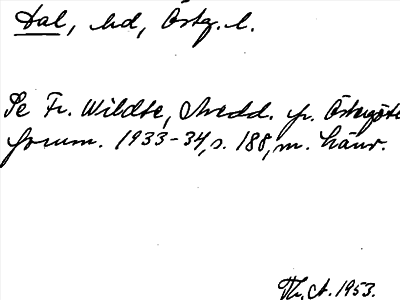 Dal, hd, Östg. l.
Se Fr. Wildte, Medd. fr. Östergötl
fornm. 1933-34, s. 188, m. hänv.
Th, ct. 1953.